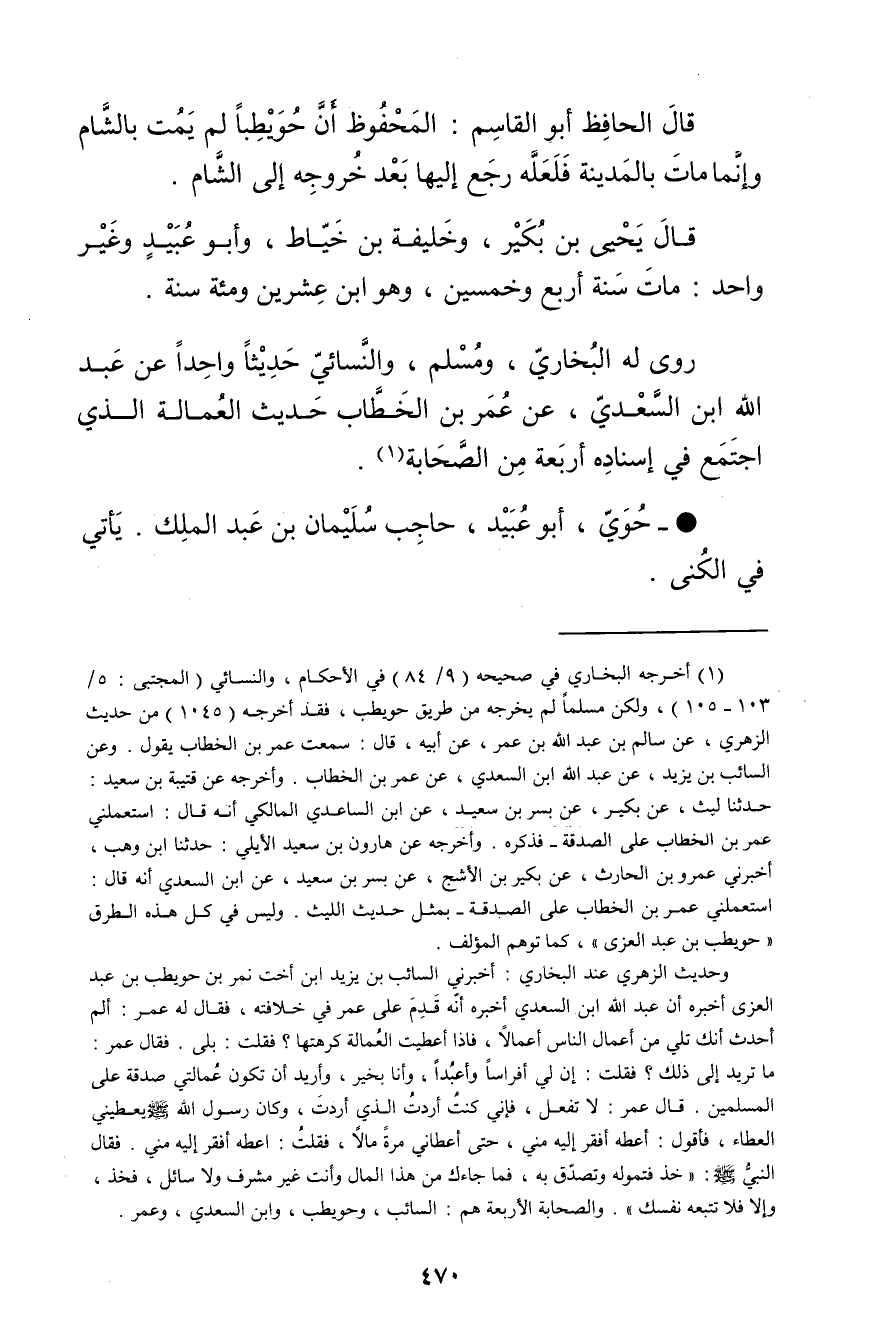 قالَ الحافِظ أبو القاسِم : المَحْفُوظ أَنَّ حُوَيْطِباً لم يَمُت بالشَّام
وإنَّما ماتَ بالمَدينة فَلَعَلَّه رجَع إليها بَعْد خُروجِه إلى الشَّام .
قـالَ يَحْيى بن بُكَيْر ، وخَليفـة بن خَيّـاط ، وأبـو عُبَيْـدٍ وغَيْـر
واحد : ماتَ سَنة أربع وخمسين ، وهو ابن عِشرين ومئة سنة .
روى له البُخاريّ ، ومُسْلم ، والنَّسائيّ حَدِيْثاً واحِداً عن عَبـد
الله ابن السَّعْـديّ ، عن عُمَر بن الخَطَّاب حَـديث العُمـالـة الـذي
اجتَمَع في إسنادِه أربَعة مِن الصَّحَابة(١) .
● ـ حُوَيّ ، أبو عُبَيْد ، حاجِب سُلَيْمان بن عَبد الملِك . يَأتي
في الكُنى .
(١) أخـرجه البخـاري في صحيحه ( ٩/ ٨٤ ) في الأحكـام ، والنسـائي ( المجتبى : ٥/
١٠٣ ـ ١٠٥ ) ، ولكن مسلماً لم يخرجه من طريق حويطب ، فقـد أخرجـه ( ١٠٤٥ ) من حديث
الزهري ، عن سالم بن عبد الله بن عمر ، عن أبيه ، قال : سمعت عمر بن الخطاب يقول . وعن
السائب بن يزيد ، عن عبد الله ابن السعدي ، عن عمر بن الخطاب . وأخرجه عن قتيبة بن سعيد :
حـدثنا ليث ، عن بكيـر ، عن بسر بن سعيـد ، عن ابن الساعـدي المالكي أنـه قـال : استعملني
عمر بن الخطاب على الصدقة ـ فذكره . وأخرجه عن هارون بن سعيد الأيلي : حدثنا ابن وهب ،
أخبرني عمرو بن الحارث ، عن بكير بن الأشج ، عن بسر بن سعيد ، عن ابن السعدي أنه قال :
استعملني عمـر بن الخطاب على الصـدقـة ـ بمثـل حـديث الليث . وليس في كـل هـذه الـطرق
« حويطب بن عبد العزى » ، كما توهم المؤلف .
وحديث الزهري عند البخاري : أخبرني السائب بن يزيد ابن أخت نمر بن حويطب بن عبد
العزى أخبره أن عبد الله ابن السعدي أخبره أنّه قَـدِمَ على عمر في خـلافته ، فقـال له عمـر : ألم
أحدث أنك تلي من أعمال الناس أعمالًا ، فاذا أعطيت العُمالة كرهتها ؟ فقلت : بلى . فقال عمر :
ما تريد إلى ذلك ؟ فقلت : إن لي أفراساً وأعبُداً ، وأنا بخير ، وأريد أن تكون عُمالتي صدقة على
المسلمين . قـال عمر : لا تفعـل ، فإني كنتُ أردتُ الـذي أردتَ ، وكان رسـول الله ﷺ يعـطيني
العطاء ، فأقول : أعطه أفقر إليه مني ، حتى أعطاني مرةً مالًا ، فقلتُ : اعطه أفقر إليه مني . فقال
النبيُّ ﷺ : « خذ فتموله وتصدّق به ، فما جاءك من هذا المال وأنت غير مشرف ولا سائل ، فخذ ،
وإلا فلا تتبعه نفسك » . والصحابة الأربعة هم : السائب ، وحويطب ، وابن السعدي ، وعمر .
٤٧٠